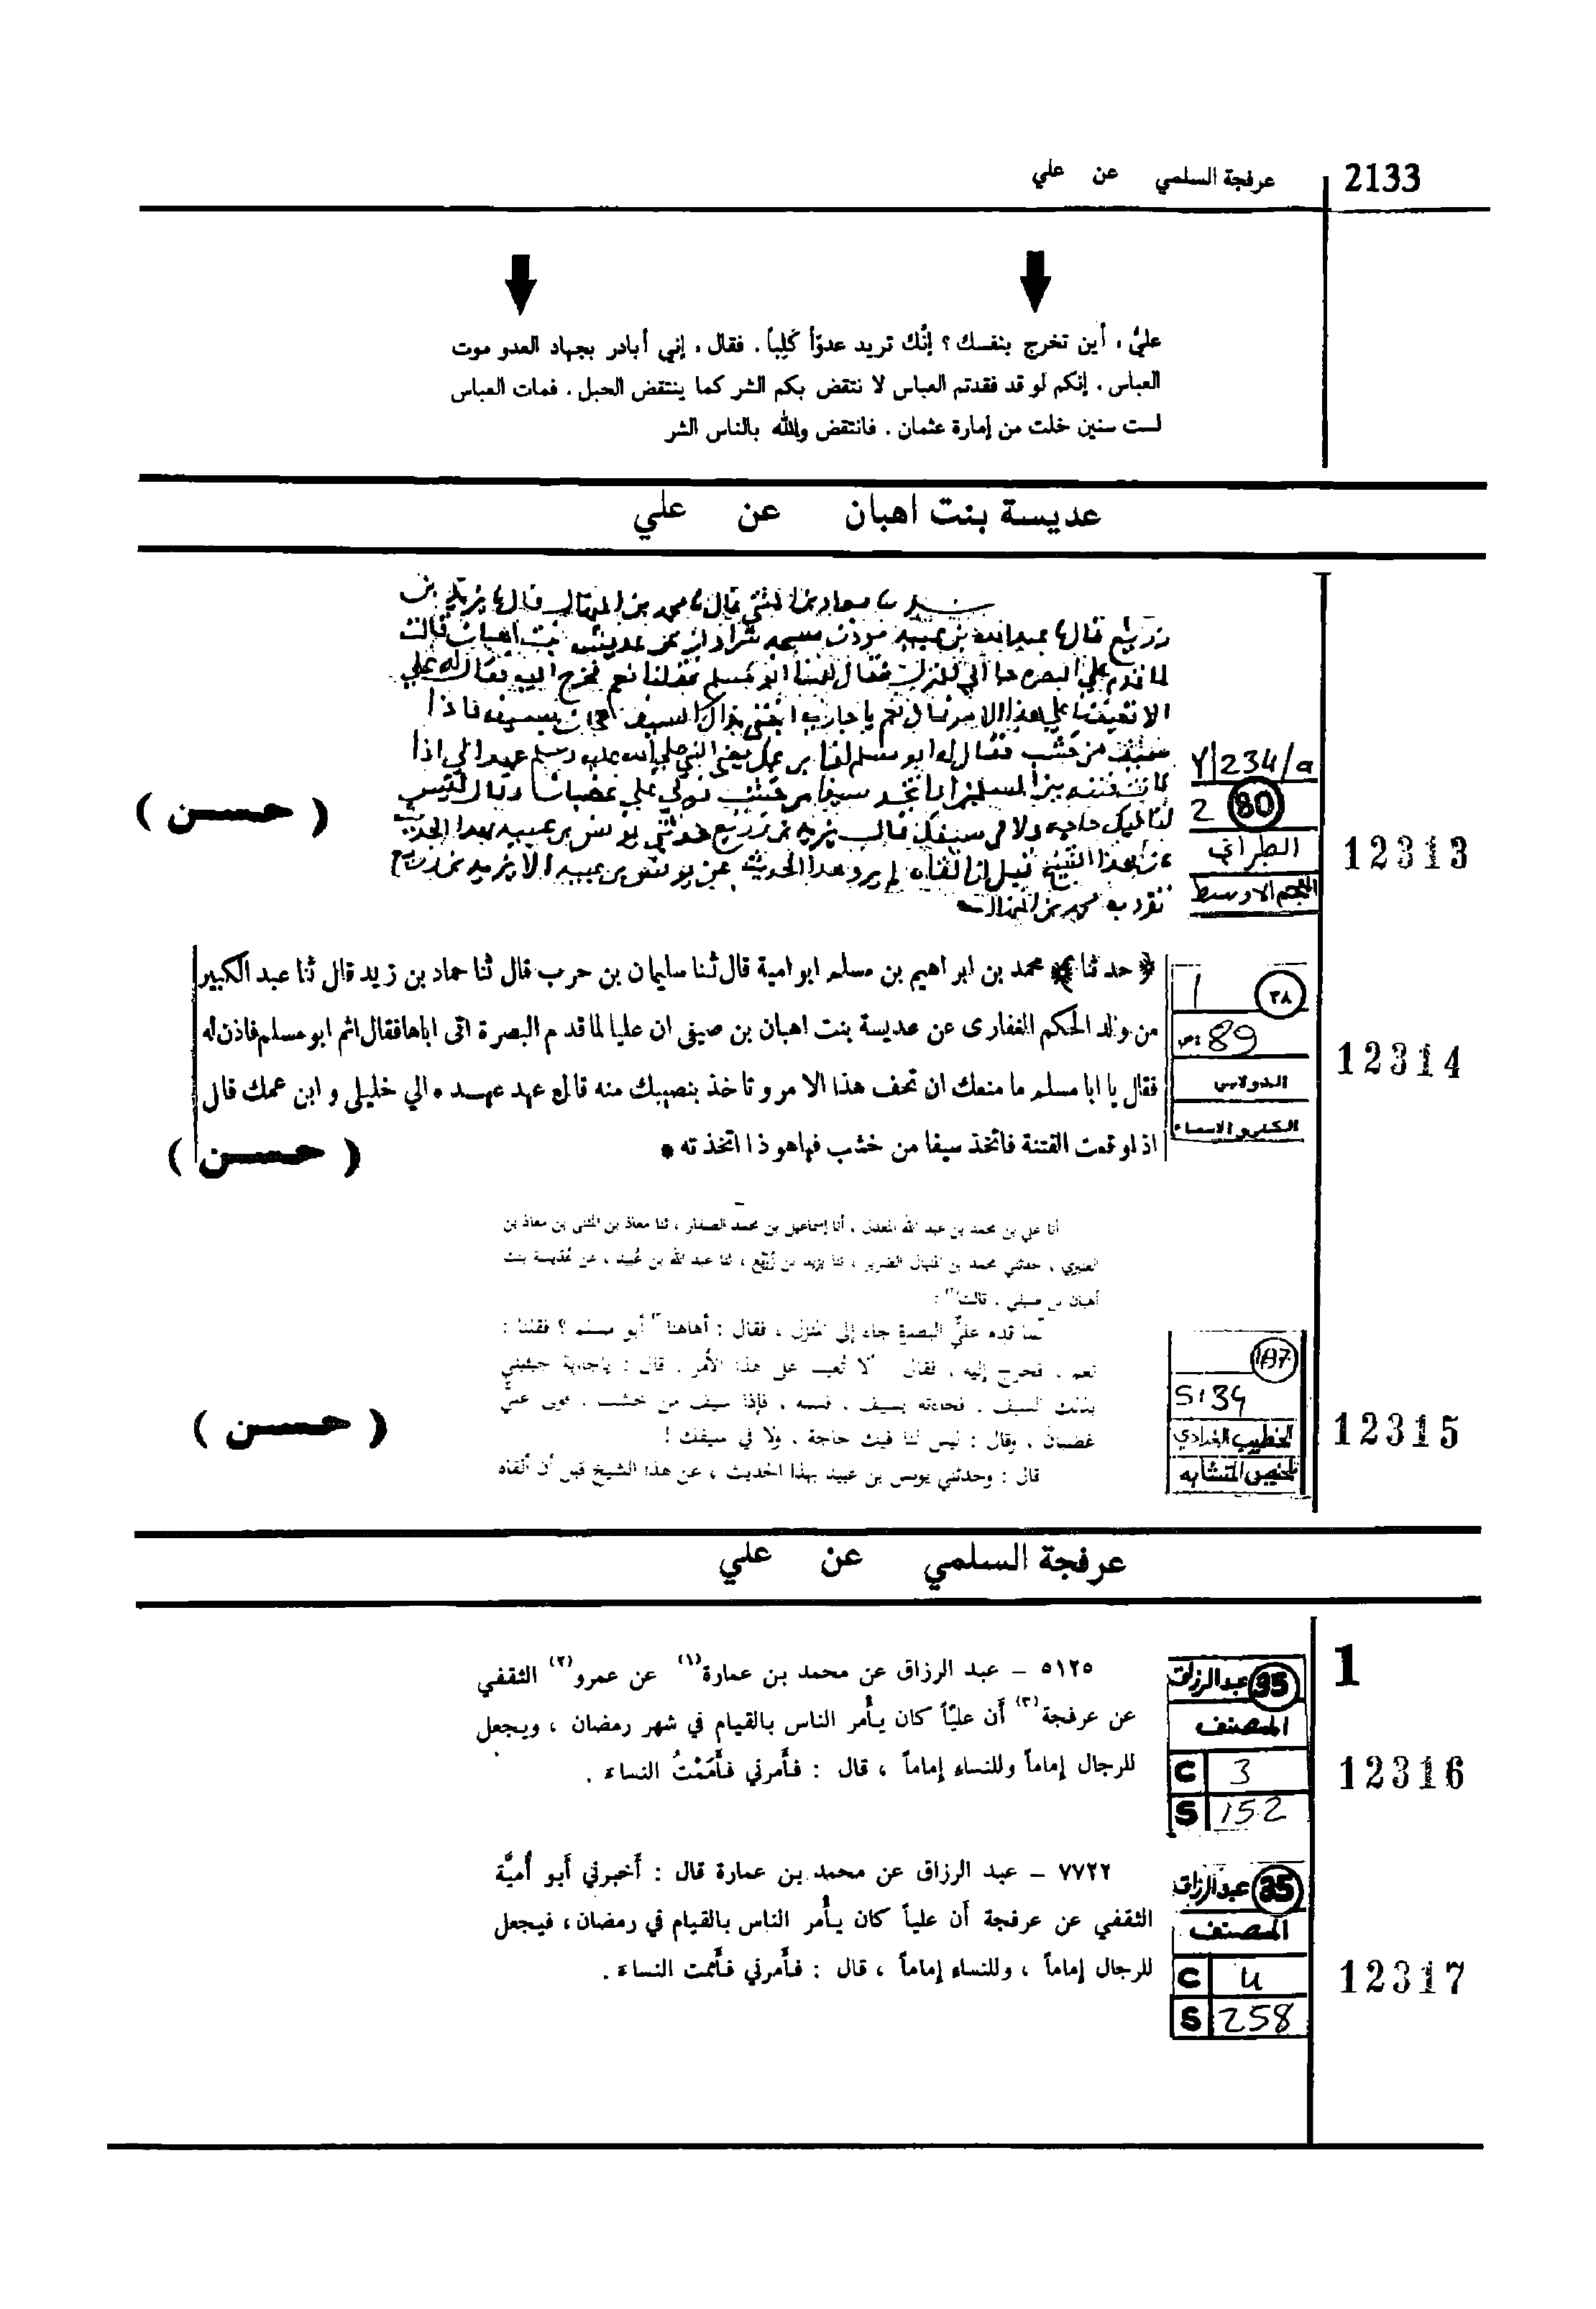 2133
عرفجة السلمي عن علي
عليّ، أين تخرج بنفسك؟ إنّك تريد عدوّاً كَلِباً. فقال، إني أبادر بجهاد العدو موت
العباس. إنكم لو قد فقدتم العباس لا نتقض بكم الشر كما ينتقض الحبل. فمات العباس
لست سنين خلت من إمارة عثمان. فانتقض والله بالناس الشر
عديسة بنت اهبان عن علي
معاذ بن المثنى قال محمد بن المنهال قال يزيد بن
زريع قال عبد الله بن عبيد مؤذن مسجد عن عديسة بنت اهبان قالت
لما قدم علي البصره جا الى المنزل فقال اهنا ابو مسلم فقلنا نعم فخرج اليه فقال له علي
الا تعيننا على هذا الامر قال نعم يا جاريه السيف فاذا
من خشب فقال له ابو مسلم يعني النبي صلى الله عليه وسلم الي اذا
بين المسلمين سيفا من خشب فولى علي غضبانا وقال ليس
لنا فيك حاجه ولا في سيفك يزيد بن زريع يونس بن عبيد بهذا الحديث
لم يرو هذا الحديث عن يونس بن عبيد الا يزيد بن زريع
تفرد به محمد بن المنهال
Y/234/a
2 80
الطبراني
المعجم الاوسط
( حسن )
12313
* حدثنا * محمد بن ابراهيم بن مسلم ابو امية قال ثنا سليمان بن حرب قال ثنا حماد بن زيد قال ثنا عبد الكبير
من ولد الحكم الغفارى عن عديسة بنت اهبان بن صيفى ان عليا لما قدم البصرة اتى اباها فقال اثم ابو مسلم فاذن له
فقال يا ابا مسلم ما منعك ان تخف هذا الامر و تاخذ بنصيبك منه قال عهد عهده الي خليلى و ابن عمك قال
اذا وقعت الفتنة فاتخذ سيفا من خشب فها هو ذا اتخذته *
1 ٣٨
ص: 89
الدولابي
الكنى و الاسماء
( حسن )
12314
أنا علي بن محمد بن عبد الله المعدل، أنا إسماعيل بن محمد الصفار، ثنا معاذ بن المثنى بن معاذ بن
العنبري، حدثني محمد بن المنهال الضرير، ثنا يزيد بن زُرَيْع، ثنا عبد الله بن عُبيد، عن عُديسة بنت
أهبان بن صيفي، قالت:
لما قدم عليٌّ البصرة جاء إلى المنزل، فقال: أهاهنا أبو مسلم؟ فقلنا:
نعم، فخرج إليه، فقال ألا تُعيننا على هذا الأمر، قال: يا جارية جيئيني
بذلك السيف، فجاءته بسيف، فسله، فإذا سيف من خشب، فولى عليٌّ
غضبان، وقال: ليس لنا فيك حاجة، ولا في سيفك!
قال: وحدثني يونس بن عبيد بهذا الحديث، عن هذا الشيخ قبل أن ألقاه
S:34
الخطيب البغدادي
تلخيص المتشابه
( حسن )
12315
عرفجة السلمي عن علي
1
٥١٢٥ – عبد الرزاق عن محمد بن عمارة(١) عن عمرو(٢) الثقفي
عن عرفجة(٣) أن عليّاً كان يأمر الناس بالقيام في شهر رمضان، ويجعل
للرجال إماماً وللنساء إماماً، قال: فأمرني فأَمَمْتُ النساء.
35 عبد الرزاق
المصنف
C 3
S 152
12316
٧٧٢٢ – عبد الرزاق عن محمد بن عمارة قال: أخبرني أبو أُميَّة
الثقفي عن عرفجة أن علياً كان يأمر الناس بالقيام في رمضان، فيجعل
للرجال إماماً، وللنساء إماماً، قال: فأمرني فأممت النساء.
35 عبد الرزاق
المصنف
C 4
S 258
12317